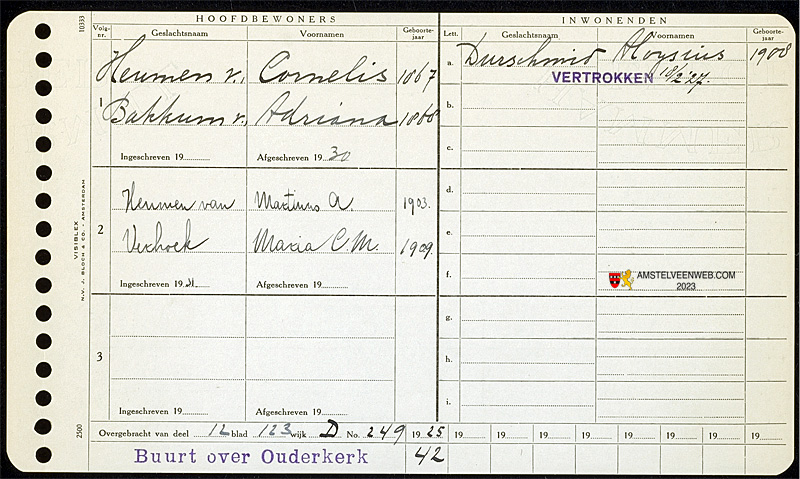 HOOFDBEWONERS
Volg-nr. Geslachtsnaam Voornamen Geboorte-jaar
1 Heumen v. Cornelis 1867
Bakkum v. Adriana 1868
Ingeschreven 19 Afgeschreven 19 30
2 Heumen van Martinus A. 1903.
Verhoek Maria C.M. 1909.
Ingeschreven 19 31 Afgeschreven 19
3
Ingeschreven 19 Afgeschreven 19
INWONENDEN
Lett. Geslachtsnaam Voornamen Geboorte-jaar
a. Durschmid Aloysius 1908
VERTROKKEN 18/2-27.
b.
c.
d.
e.
f.
AMSTELVEENWEB.COM
2023
g.
h.
i.
Overgebracht van deel 12 blad 123 wijk D No. 249 19 25 19 19 19 19 19 19 19 19
Buurt over Ouderkerk 42
10333
VISIBLEX
N.V. J. BLOCH & CO. - AMSTERDAM
2500